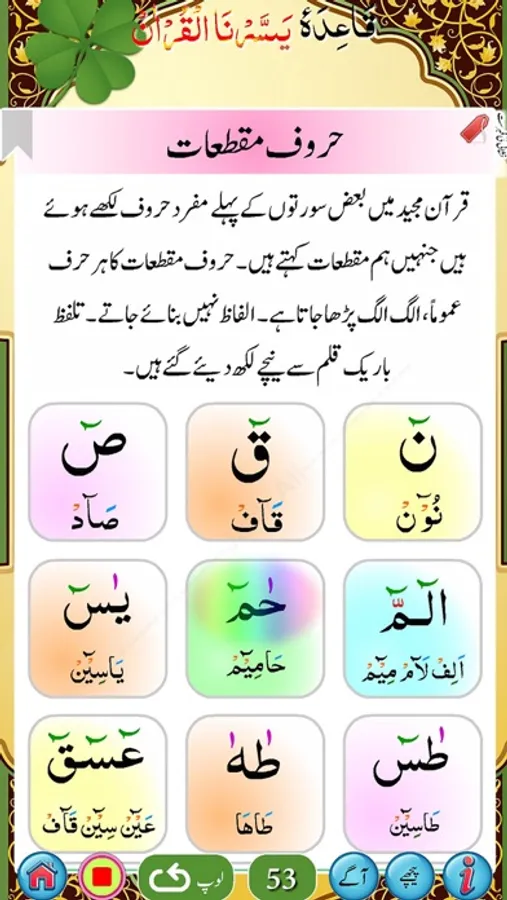 قَاعِدَہ یَسَّرْنَا الْقُرْاٰن
حروف مقطعات
قرآن مجید میں بعض سورتوں کے پہلے مفرد حروف لکھے ہوئے
ہیں جنہیں ہم مقطعات کہتے ہیں۔ حروف مقطعات کا ہر حرف
عموماً، الگ الگ پڑھا جاتا ہے۔ الفاظ نہیں بنائے جاتے۔ تلفظ
باریک قلم سے نیچے لکھ دیئے گئے ہیں۔
نٓ قٓ صٓ
نُوْٓنْ قَآفْ صَآدْ
الٓمّٓ حٰمٓ یٰسٓ
اَلِفْ لَآمْ مِیْٓمْ حَامِیْٓمْ یَاسِیْٓنْ
طٰسٓ طٰهٰ عٓسٓقٓ
طَاسِیْٓنْ طَاهَا عَیْٓنْ سِیْٓنْ قَآفْ
لوپ 53 آگے پیچھے